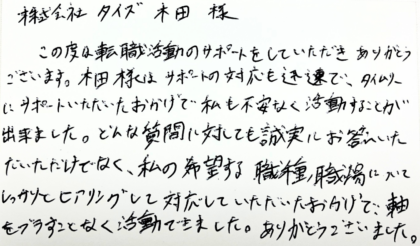 株式会社 タイズ 木田 様
この度は転職活動のサポートをしていただき ありがとう
ございます。木田様は サポートの対応も迅速で、タイムリー
にサポートいただいたおかげで 私も不安なく活動することが
出来ました。どんな質問に対しても誠実にお答えいた
だいただけでなく、私の希望する 職種、職場について
しっかりとヒアリングして対応していただいたおかげで、軸
をブラすことなく活動できました。ありがとうございました。